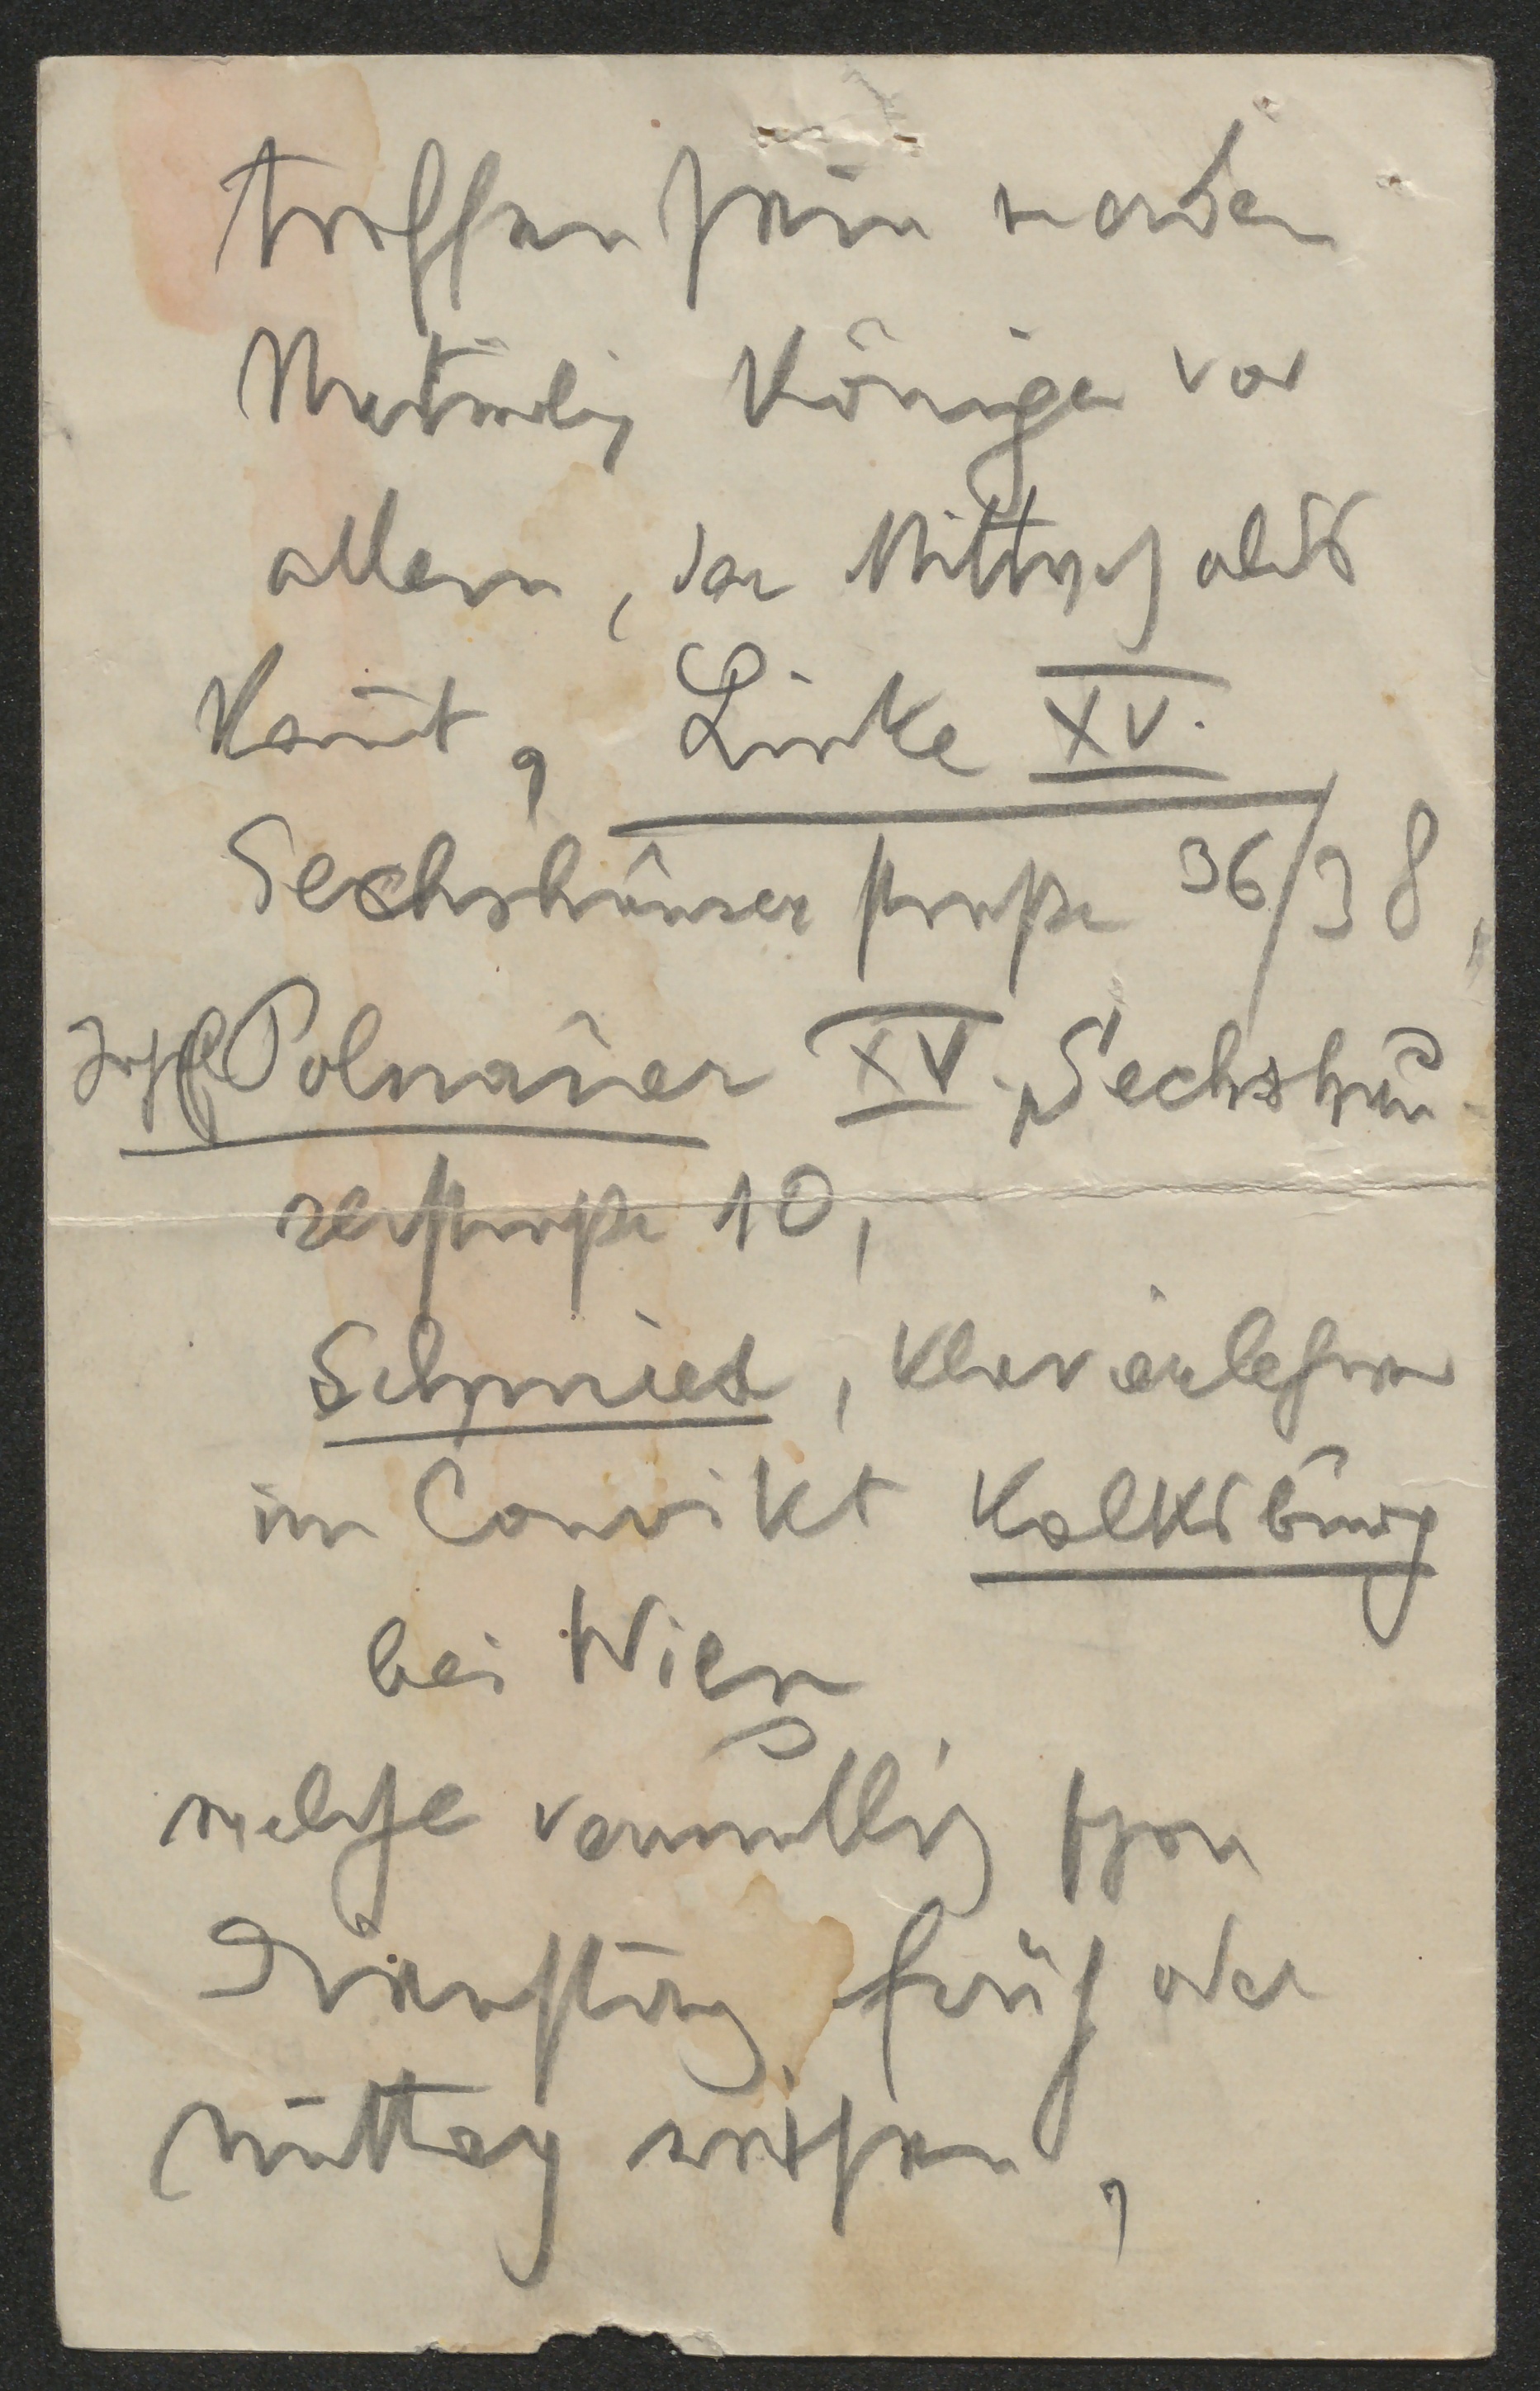 treffen sein werden
Natürlich Königer vor
allem, der Mittwoch abds
kom̅t, Linke XV.
Sechshauserstraße 36/38,
Josef Polnauer XV. Sechshau
serstraße 10,
Schmied, Klavierlehrer
im Convikt Kalksburg
bei Wien,
welche vermutlich schon
Dienstag früh oder
mittag